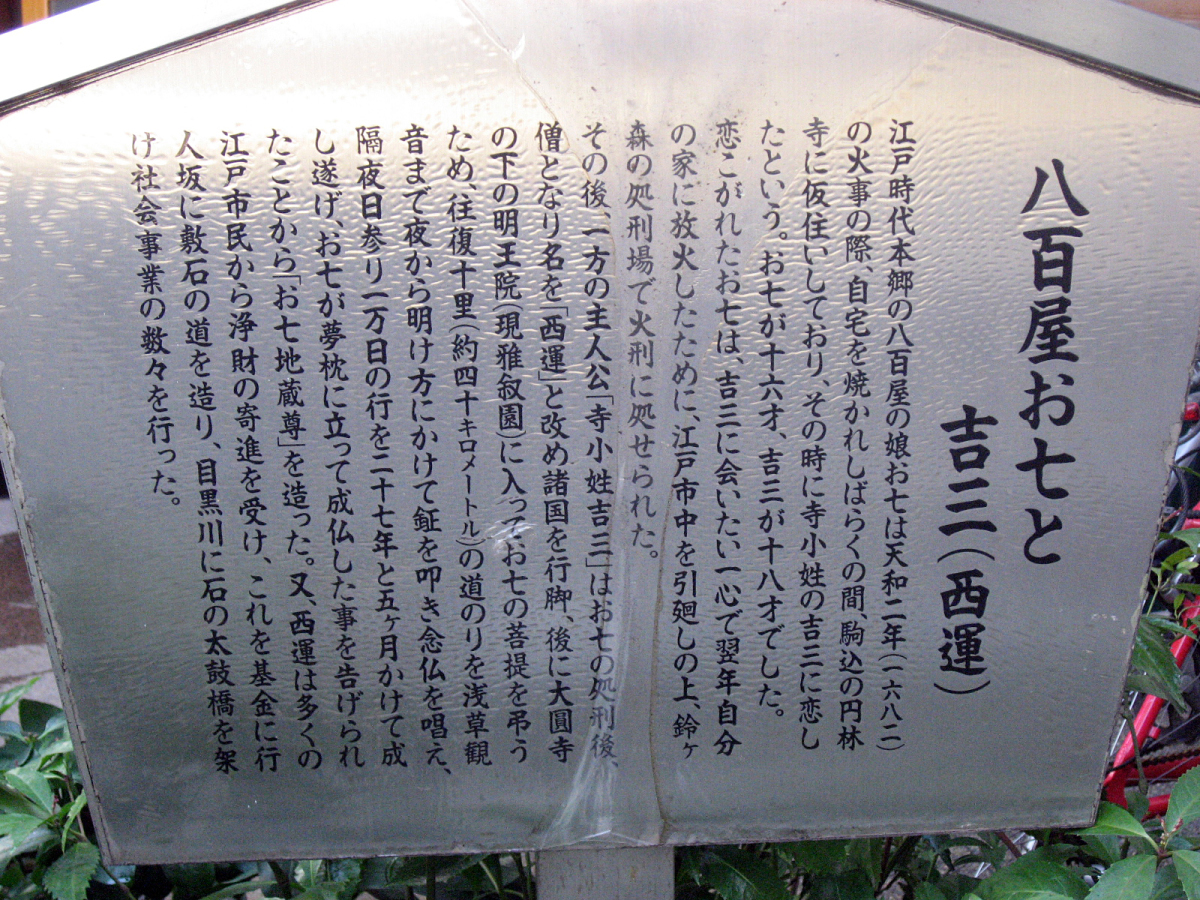 八百屋お七と
吉三(西運)
江戸時代本郷の八百屋の娘お七は天和二年(一六八二)
の火事の際、自宅を焼かれしばらくの間、駒込の円林
寺に仮住いしており、その時に寺小姓の吉三に恋し
たという。お七が十六才、吉三が十八才でした。
恋こがれたお七は、吉三に会いたい一心で翌年自分
の家に放火したために、江戸市中を引廻しの上、鈴ヶ
森の処刑場で火刑に処せられた。
その後、一方の主人公「寺小姓吉三」はお七の処刑後、
僧となり名を「西運」と改め諸国を行脚、後に大圓寺
の下の明王院(現雅叙園)に入ってお七の菩提を弔う
ため、往復十里(約四十キロメートル)の道のりを浅草観
音まで夜から明け方にかけて鉦を叩き念仏を唱え、
隔夜日参り一万日の行を二十七年と五ヶ月かけて成
し遂げ、お七が夢枕に立って成仏した事を告げられ
たことから「お七地蔵尊」を造った。又、西運は多くの
江戸市民から浄財の寄進を受け、これを基金に行
人坂に敷石の道を造り、目黒川に石の太鼓橋を架
け社会事業の数々を行った。